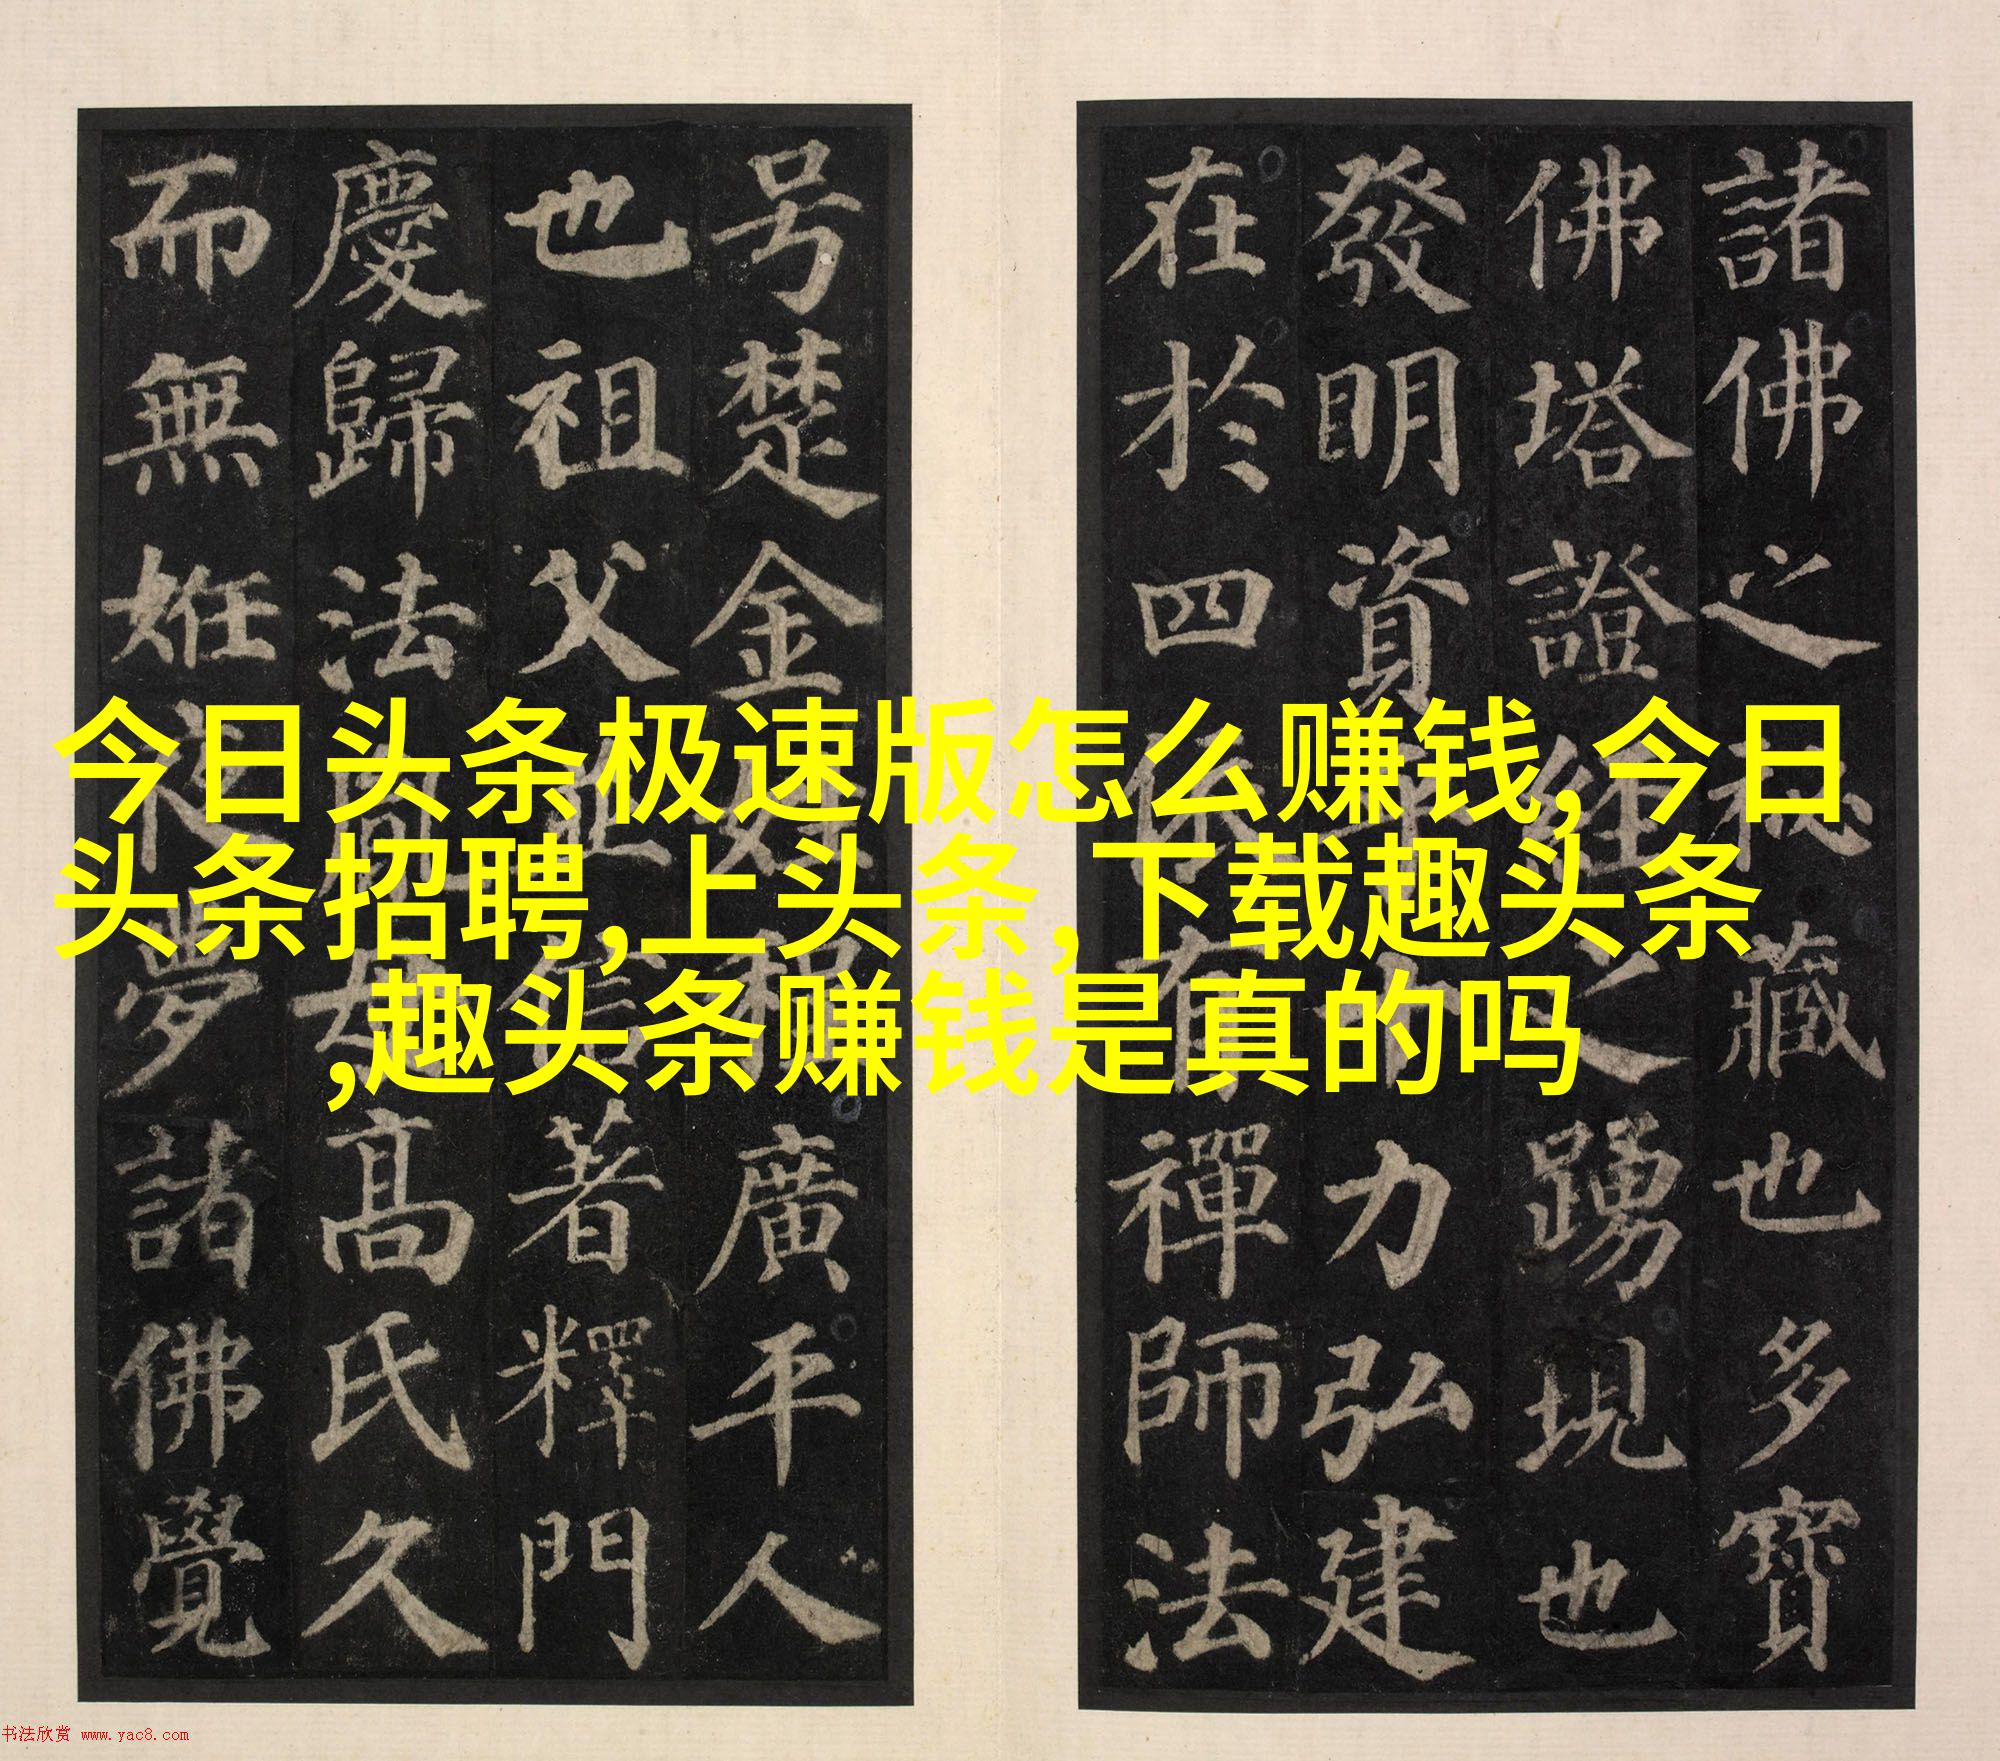 諸佛之秘藏也多寶
佛塔證經之踴現也
發明資乎十力弘建
在於四依有禪師法
号楚金姓程廣平人
也祖父並信著釋門
慶歸法胤母高氏久
而無姙夜夢諸佛覺
今日头条极速版怎么赚钱,今日
头条招聘,上头条,下载趣头条
,趣头条赚钱是真的吗
书法欣赏 www.yac8.com